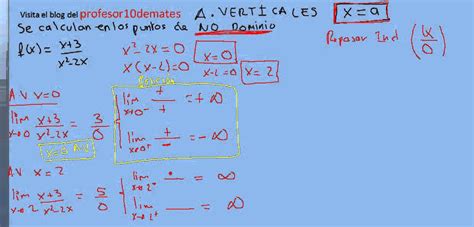 Visita el blog del profesor10demates A. VERTICALES x = a
Se calculan en los puntos de NO DOMINIO
Repasar Ind (k/0)
f(x) = x+3/x²-2x x²-2x=0 x=0
x(x-2)=0 x-2=0 x=2
AV x=0
lim x→0 x+3/x²-2x = 3/0
lim x→0⁻ +/+ = +∞
lim x→0⁺ +/- = -∞
AV x=2
lim x→2 x+3/x²-2x = 5/0
lim x→2⁻ = ∞
lim x→2⁺ = ∞